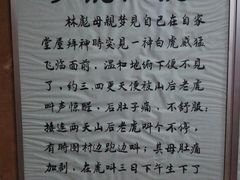 林彪母親夢見自己在自家
堂屋拜神時突見一神白虎威猛
飞临面前，温和地俯下便不见
了，约三、四更天便被山后老虎
叫声惊醒，后肚子痛，不舒服，
接连两天山后老虎叫个不停，
有时围村边跑边叫；其母肚痛
加剧，在虎叫三日下午生下了